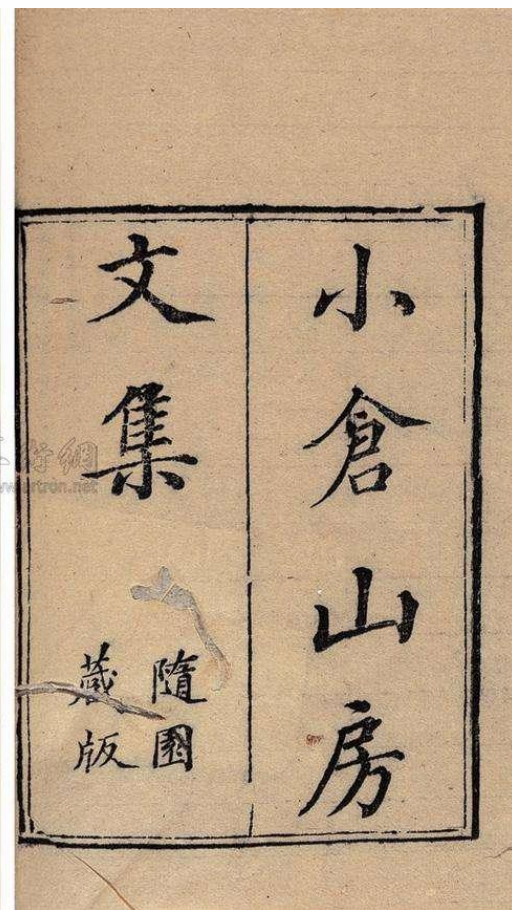 小倉山房
文集
隨園
藏版
www.artron.net